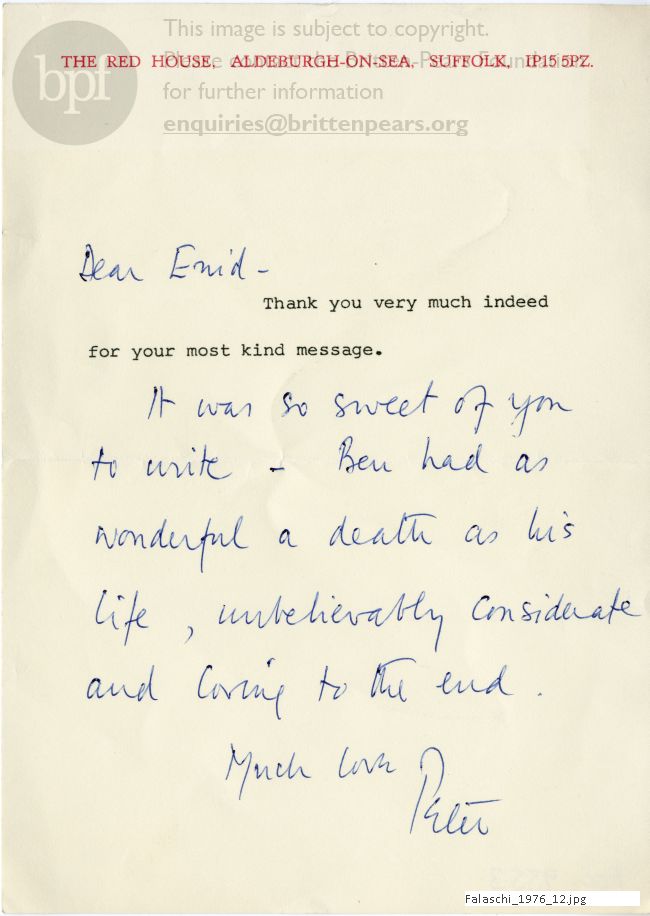 This image is subject to copyright.
THE RED HOUSE, ALDEBURGH-ON-SEA, SUFFOLK, IP15 5PZ.
bpf
for further information
enquiries@brittenpears.org
Dear Enid -
Thank you very much indeed
for your most kind message.
It was so sweet of you
to write - Ben had as
wonderful a death as his
life, unbelievably considerate
and loving to the end.
Much love
Peter
Falaschi_1976_12.jpg